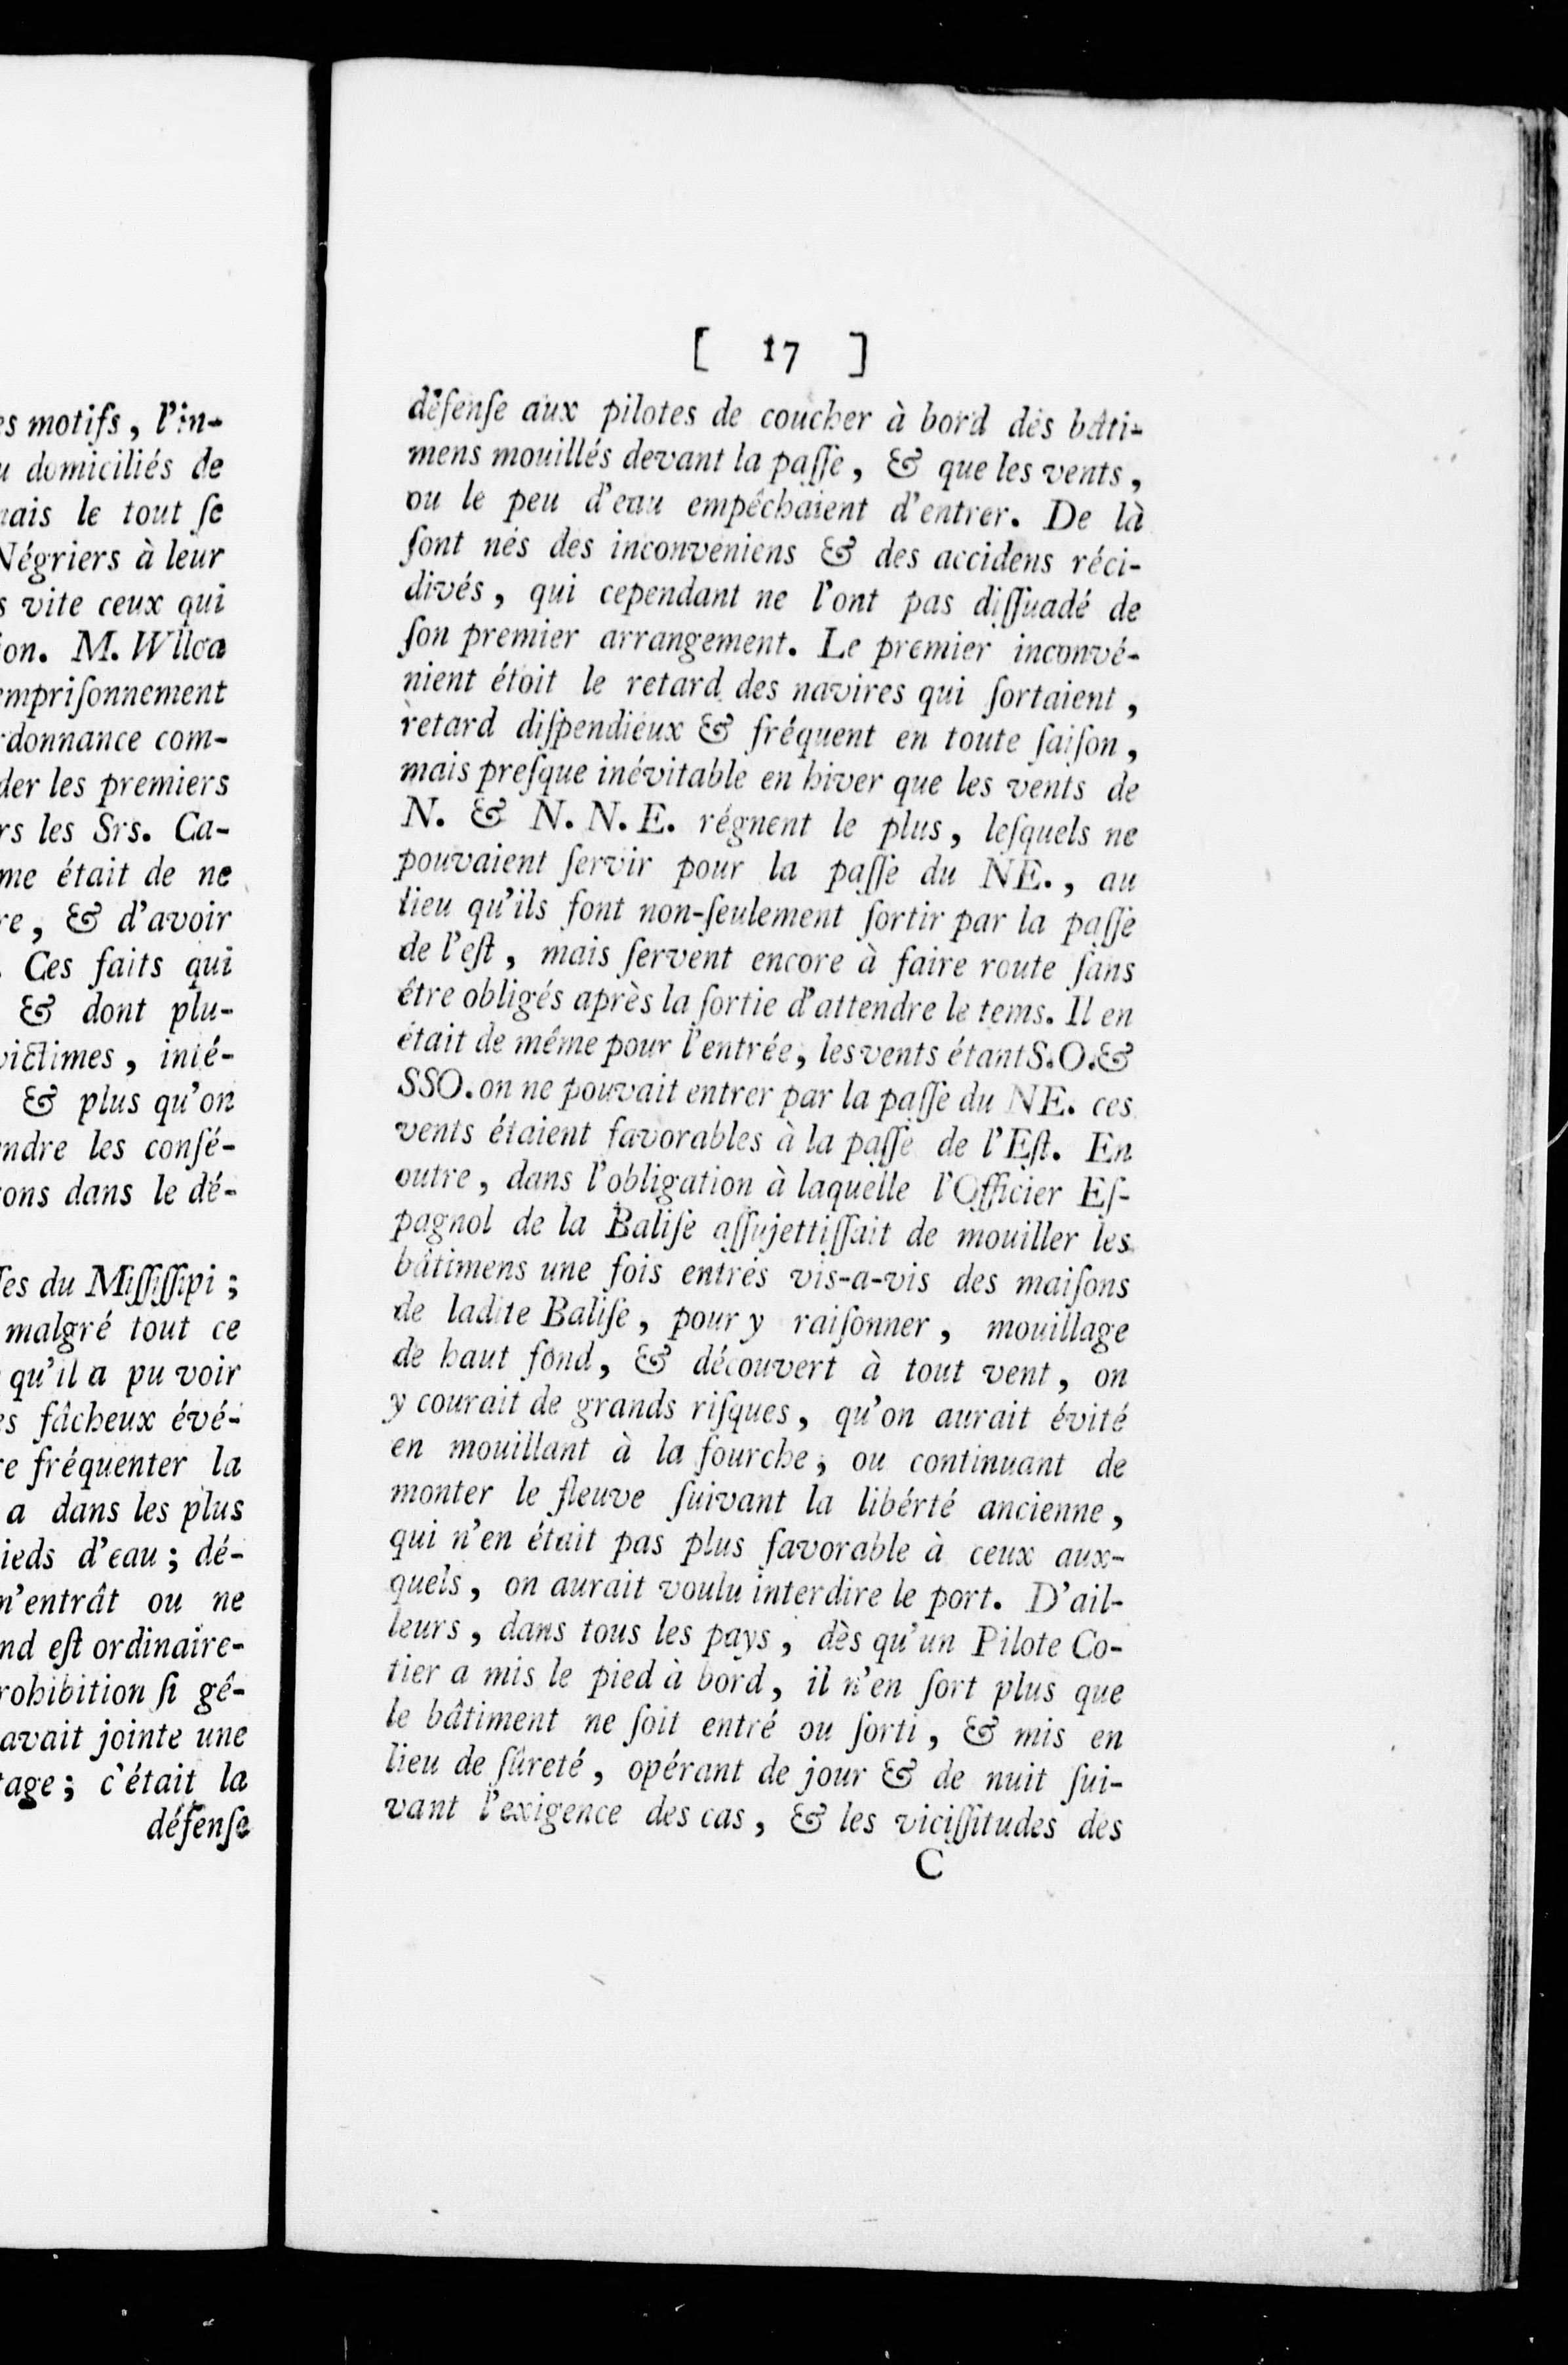 es motifs, l'in-
u domiciliés de
ais le tout ſe
Négriers à leur
s vite ceux qui
ion. M. Wlloa
empriſonnement
rdonnance com-
der les premiers
rs les Srs. Ca-
me était de ne
re, & d'avoir
. Ces faits qui
& dont plu-
victimes, inté-
& plus qu'on
ndre les conſé-
ons dans le dé-
ſes du Miſſiſſipi;
malgré tout ce
qu'il a pu voir
es fâcheux évé-
re fréquenter la
a dans les plus
ieds d'eau; dé-
n'entrât ou ne
nd eſt ordinaire-
rohibition ſi gé-
avait jointe une
tage; c'était la
défenſe
[ 17 ]
défenſe aux pilotes de coucher à bord des bâti-
mens mouillés devant la paſſe, & que les vents,
ou le peu d'eau empêchaient d'entrer. De là
ſont nés des inconveniens & des accidens réci-
divés, qui cependant ne l'ont pas diſſuadé de
ſon premier arrangement. Le premier inconvé-
nient étoit le retard des navires qui ſortaient,
retard diſpendieux & fréquent en toute ſaiſon,
mais preſque inévitable en hiver que les vents de
N. & N. N. E. régnent le plus, leſquels ne
pouvaient ſervir pour la paſſe du NE., au
lieu qu'ils font non-ſeulement ſortir par la paſſe
de l'eſt, mais ſervent encore à faire route ſans
être obligés après la ſortie d'attendre le tems. Il en
était de même pour l'entrée, les vents étant S.O.&
SSO. on ne pouvait entrer par la paſſe du NE. ces
vents étaient favorables à la paſſe de l'Eſt. En
outre, dans l'obligation à laquelle l'Officier Eſ-
pagnol de la Baliſe aſſujettiſſait de mouiller les
bâtimens une fois entrés vis-a-vis des maiſons
de ladite Baliſe, pour y raiſonner, mouillage
de haut fond, & découvert à tout vent, on
y courait de grands riſques, qu'on aurait évité
en mouillant à la fourche; ou continuant de
monter le fleuve ſuivant la libérté ancienne,
qui n'en était pas plus favorable à ceux aux-
quels, on aurait voulu interdire le port. D'ail-
leurs, dans tous les pays, dès qu'un Pilote Co-
tier a mis le pied à bord, il n'en ſort plus que
le bâtiment ne ſoit entré ou ſorti, & mis en
lieu de ſûreté, opérant de jour & de nuit ſui-
vant l'exigence des cas, & les viciſſitudes des
C